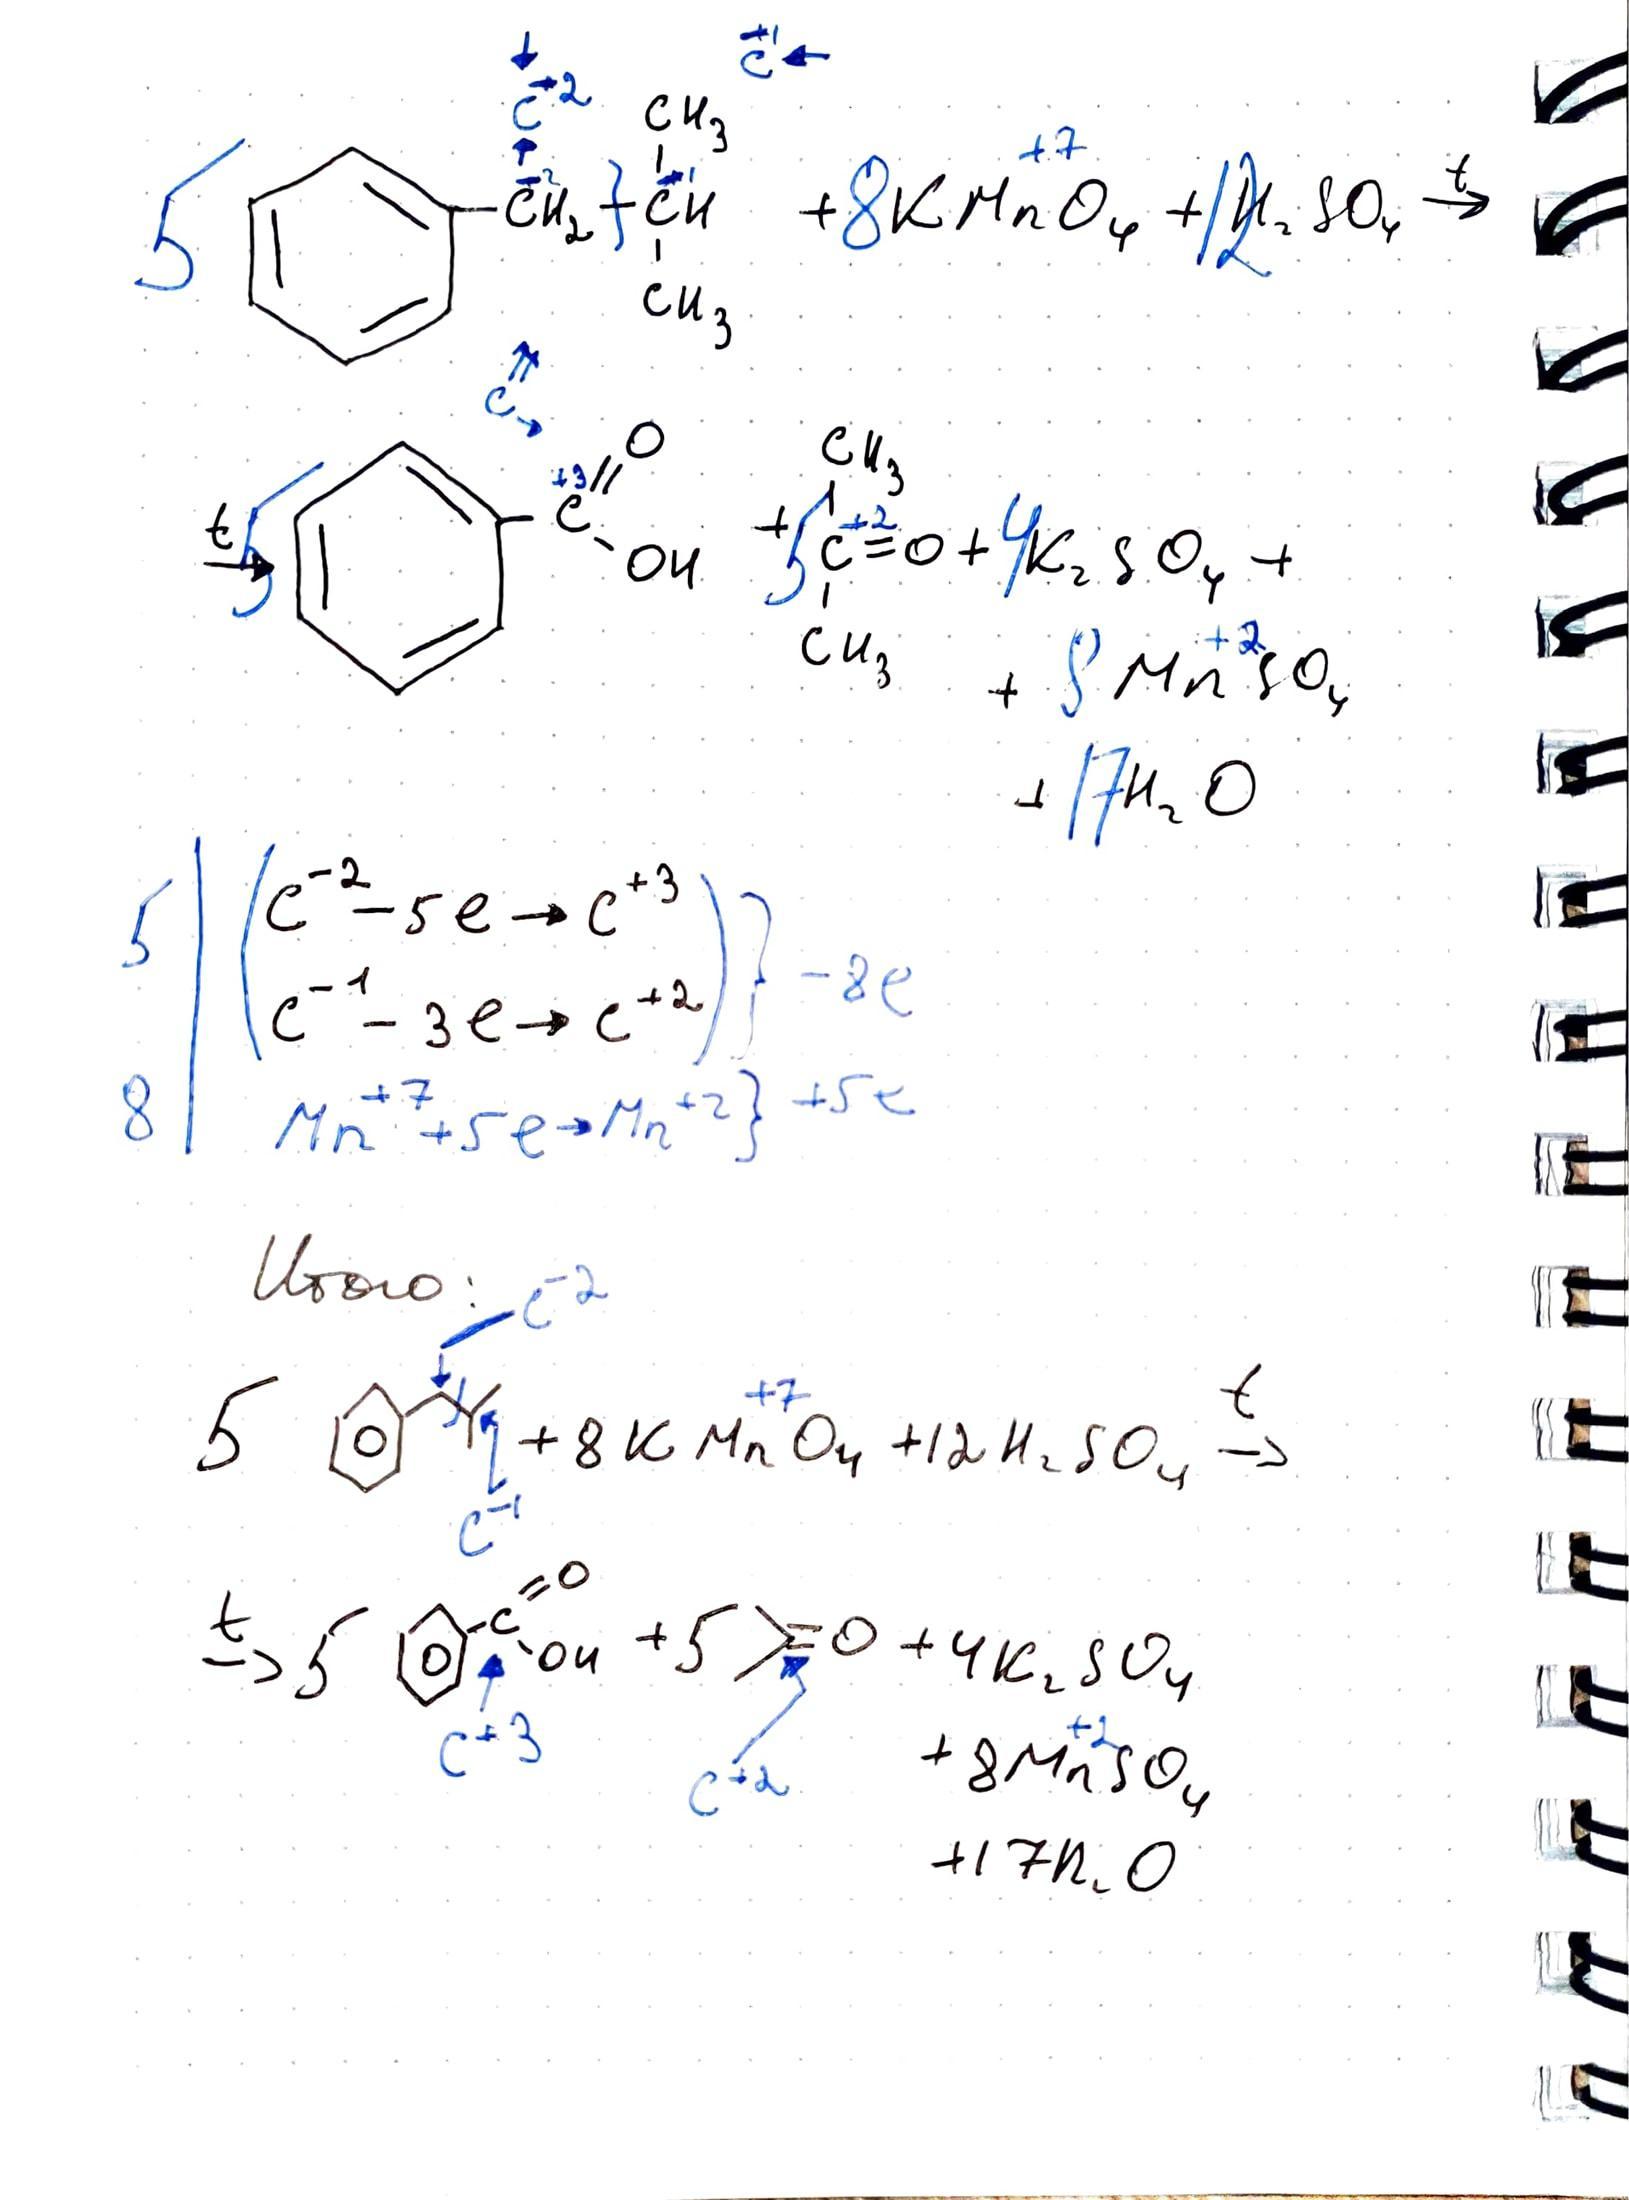 C⁻²
C⁻¹
CH₃
5 –C⁻²H₂–C⁻¹H + 8KMn⁺⁷O₄ + 12H₂SO₄ t→
CH₃
C
O
CH₃
t→ 5 –C⁺³ OH + 5C⁺²=O + 4K₂SO₄ +
CH₃
+ 8Mn⁺²SO₄
+ 17H₂O
5 | (C⁻² – 5e → C⁺³
C⁻¹ – 3e → C⁺²)} –8e
8 | Mn⁺⁷ + 5e → Mn⁺²} +5e
Итого:
C⁻²
5 + 8KMn⁺⁷O₄ + 12H₂SO₄ t→
C⁻¹
t→ 5 –C=O OH + 5 =O + 4K₂SO₄
C⁺³
C⁺²
+ 8Mn⁺²SO₄
+ 17H₂O